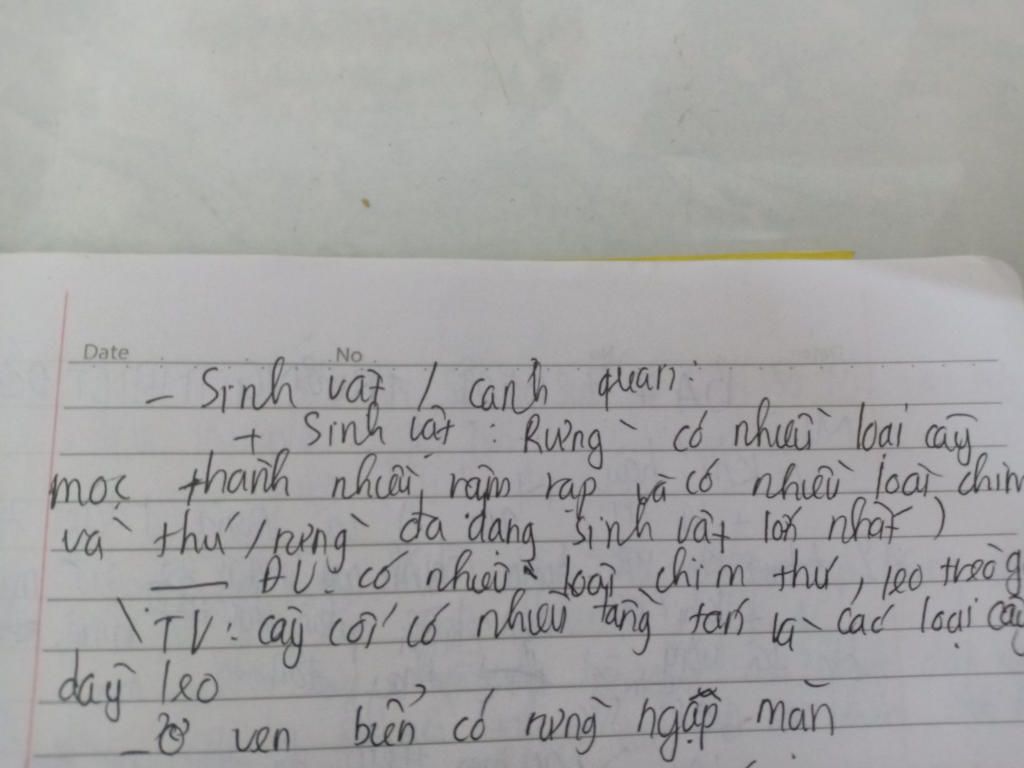 Date No
- Sinh vật / cảnh quan:
+ Sinh vật: Rừng có nhiều loại cây
mọc thành nhiều, rậm rạp và có nhiều loài chim
và thú / rừng đa dạng sinh vật lớn nhất )
— ĐV: có nhiều loại chim thú, leo trèo g
\ TV: cây cối có nhiều tầng tán và các loại cây
dây leo
- Ở ven biển có rừng ngập mặn